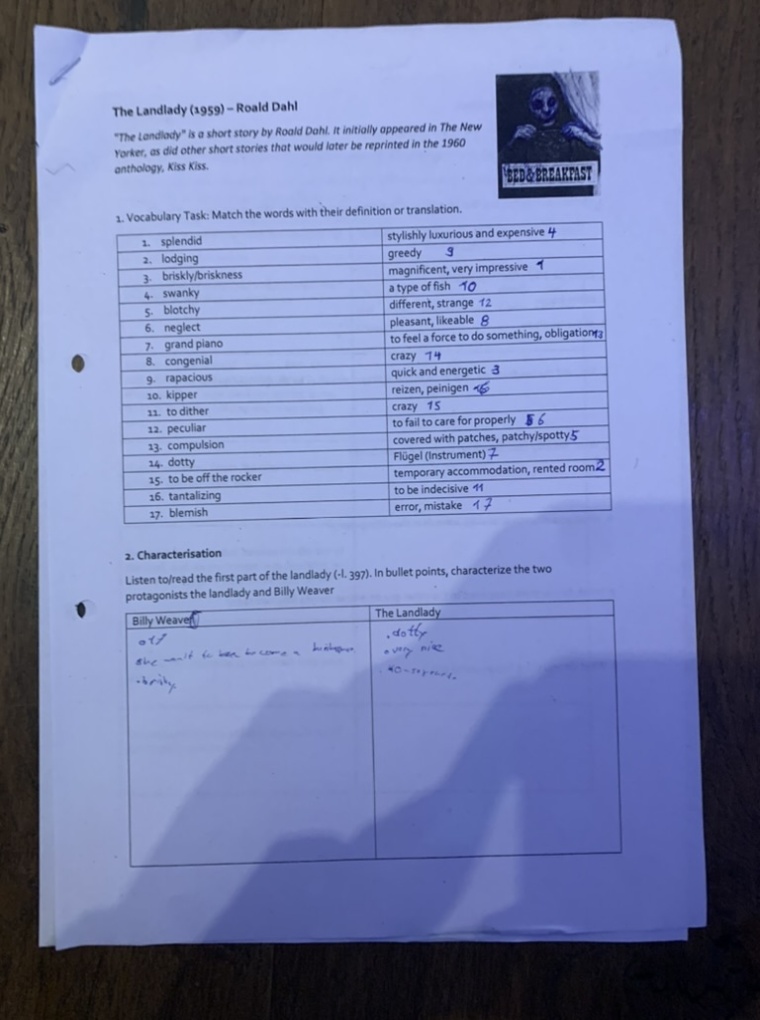 The Landlady (1959) – Roald Dahl
"The Landlady" is a short story by Roald Dahl. It initially appeared in The New
Yorker, as did other short stories that would later be reprinted in the 1960
anthology, Kiss Kiss.
BED & BREAKFAST
1. Vocabulary Task: Match the words with their definition or translation.
1. splendid stylishly luxurious and expensive 4
2. lodging greedy 9
3. briskly/briskness magnificent, very impressive 1
4. swanky a type of fish 10
5. blotchy different, strange 12
6. neglect pleasant, likeable 8
7. grand piano to feel a force to do something, obligation 13
8. congenial crazy 14
9. rapacious quick and energetic 3
10. kipper reizen, peinigen 16
11. to dither crazy 15
12. peculiar to fail to care for properly 6
13. compulsion covered with patches, patchy/spotty 5
14. dotty Flügel (Instrument) 7
15. to be off the rocker temporary accommodation, rented room 2
16. tantalizing to be indecisive 11
17. blemish error, mistake 17
2. Characterisation
Listen to/read the first part of the landlady (-l. 397). In bullet points, characterize the two
protagonists the landlady and Billy Weaver
Billy Weaver The Landlady
. dotty
. very nice
to become a